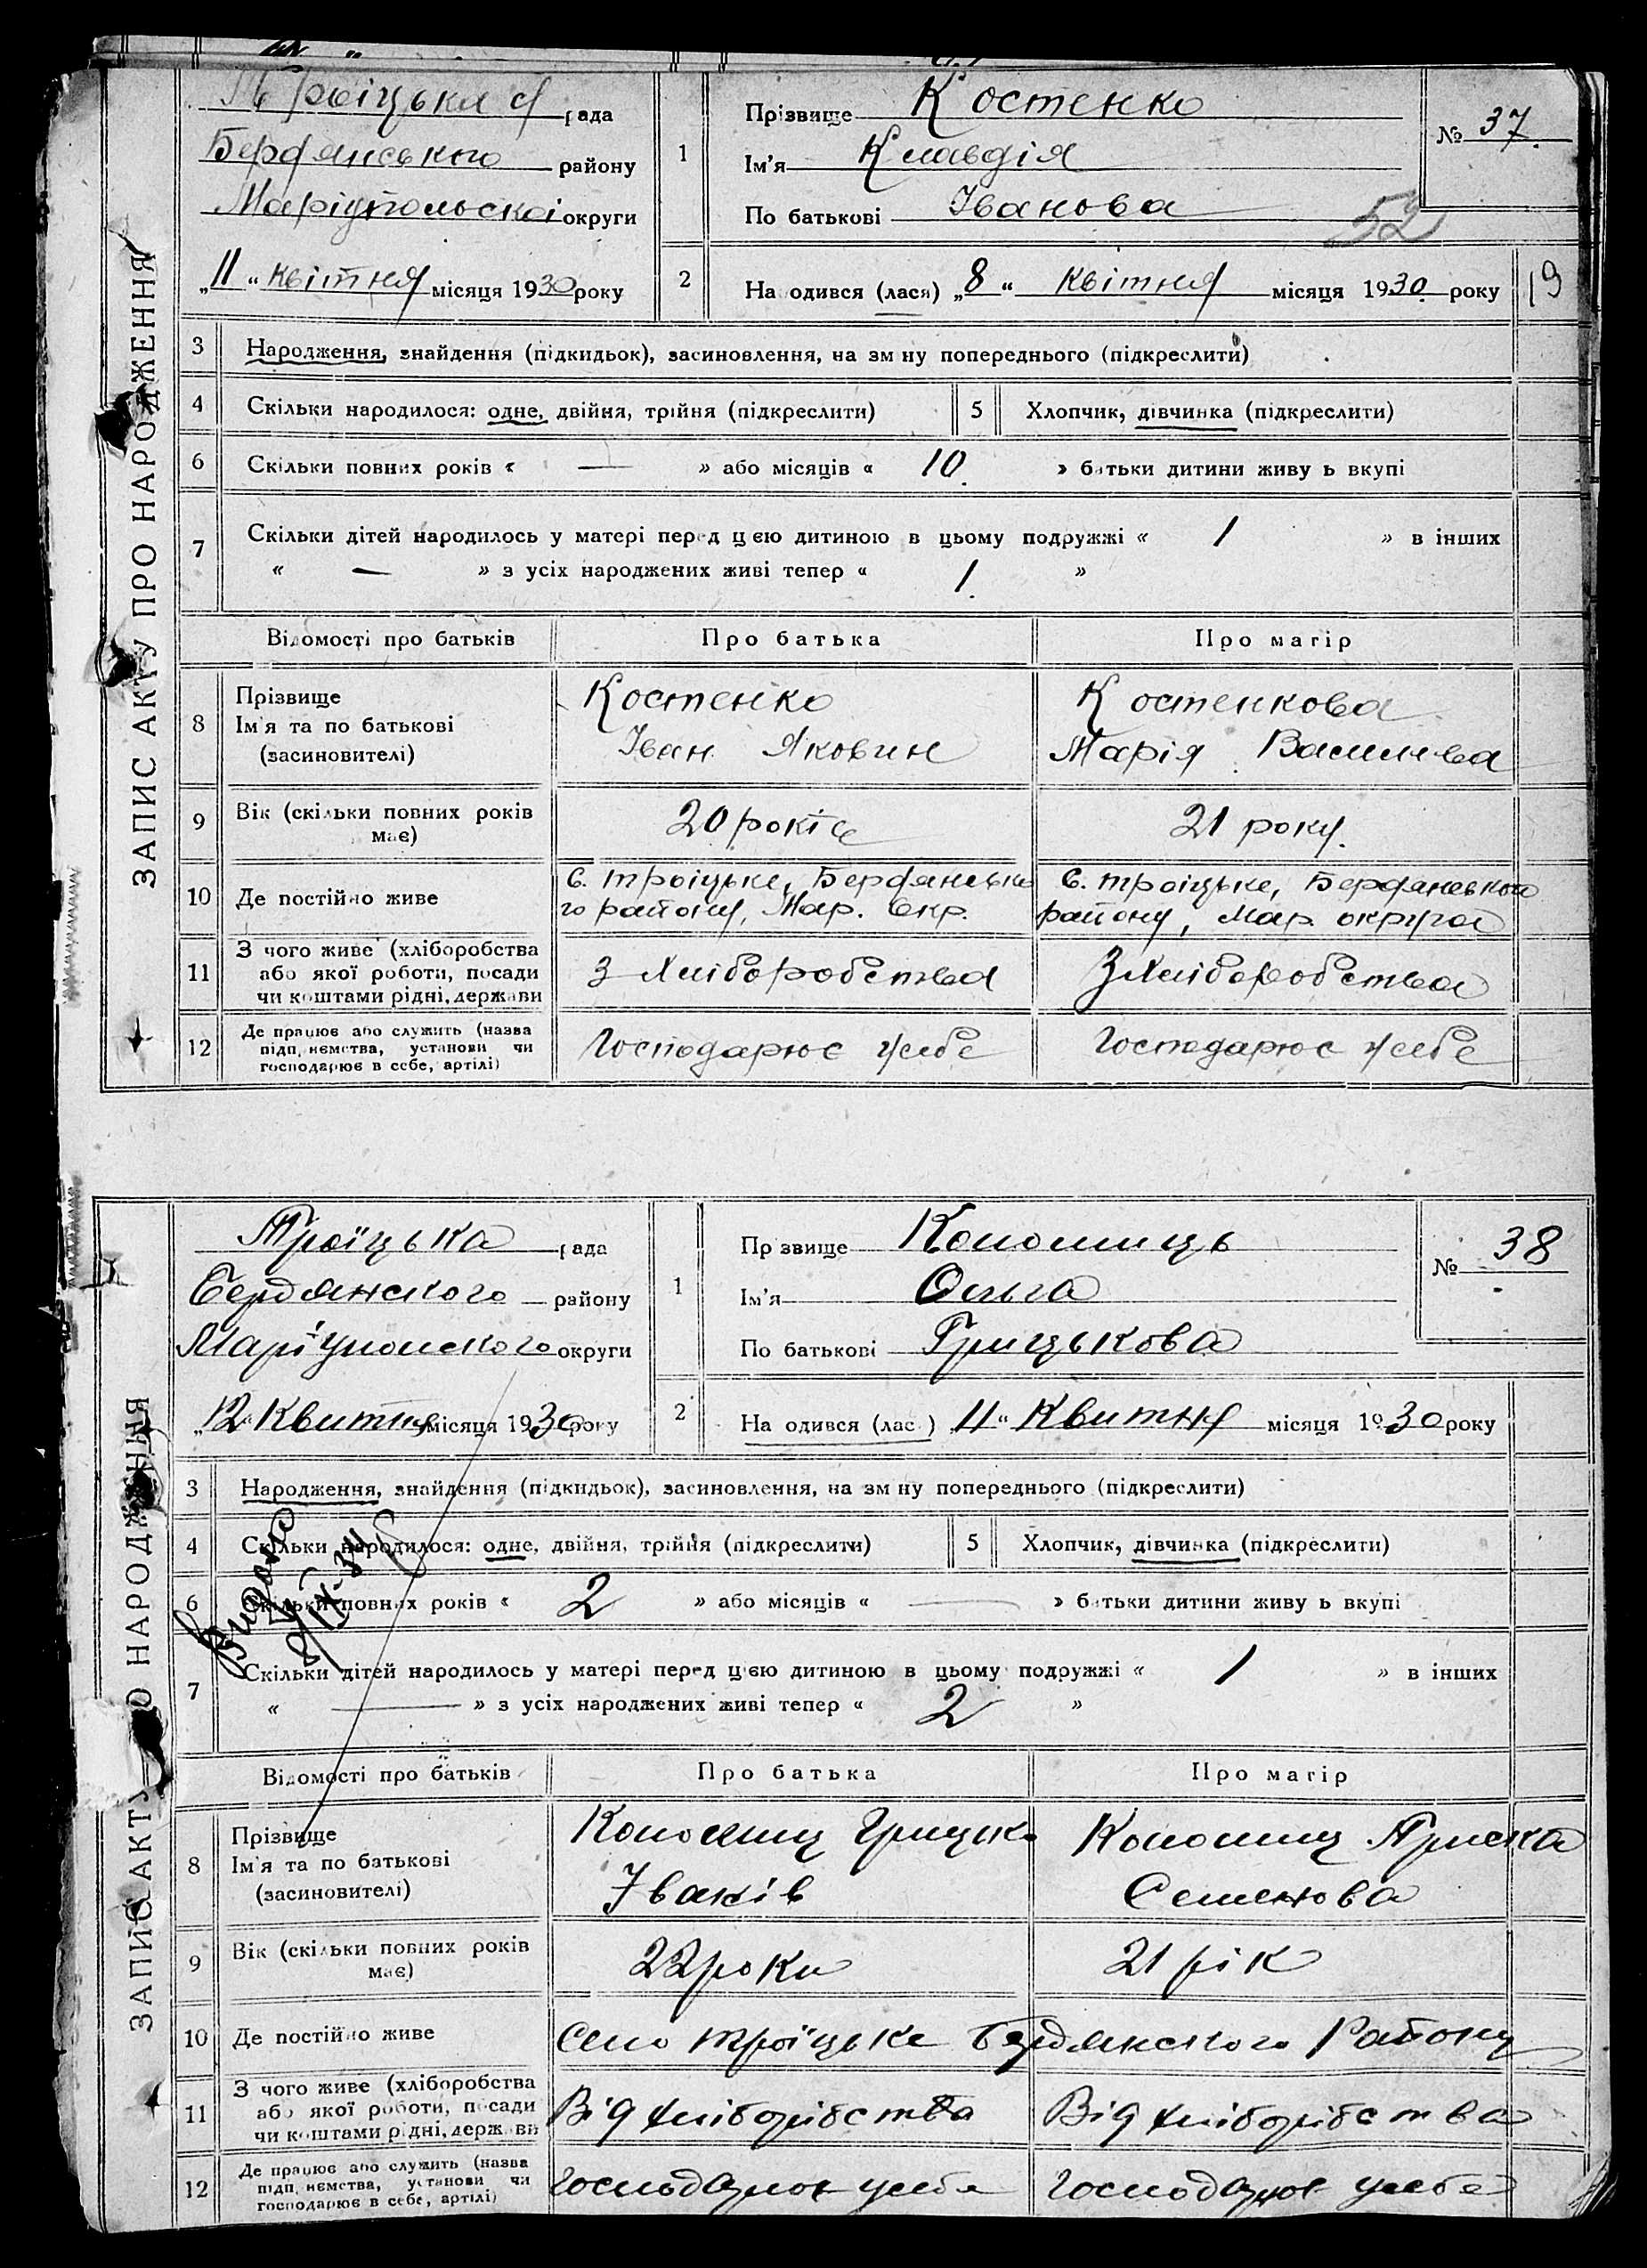 ЗАПИС АКТУ ПРО НАРОДЖЕННЯ
Троїцька рада
Бердянського району
Маріупольскої округи
„11“ квітня місяця 1930 року
1
Прізвище Костенко
Ім'я Клавдія
По батькові Іванова
№ 37.
52
2
На одився (лася) „8“ квітня місяця 1930. року
19
3 Народження, знайдення (підкидьок), засиновлення, на зм ну попереднього (підкреслити)
4 Скільки народилося: одне, двійня, трійня (підкреслити)
5 Хлопчик, дівчинка (підкреслити)
6 Скільки повних років « — » або місяців « 10. » батьки дитини живу ь вкупі
7 Скільки дітей народилось у матері перед цією дитиною в цьому подружжі « 1 » в інших
« — » з усіх народжених живі тепер « 1. »
Відомості про батьків Про батька Про матір
8 Прізвище
Ім'я та по батькові
(засиновителі)
Костенко
Іван Яковин
Костенкова
Марія Васильева
9 Вік (скільки повних років має)
20 років
21 року.
10 Де постійно живе
с. Троіцьке, Бердянсько
го району, Мар. Окр.
с. Троіцьке, Бердянського
району, Мар. округа
11 З чого живе (хліборобства
або якої роботи, посади
чи коштами рідні, держави
З Хліборобства
З Хліборобства
12 Де працює або служить (назва
підп, иємства, установи чи
господарює в себе, артілі)
Господарює у себе
Господарює у себе
ЗАПИС АКТУ О НАРОДЖЕННЯ
Троїцька рада
Бердянского району
Маріупольского округи
„12“ Квитня місяця 1930 року
1
Пр звище Коломиць
Ім'я Ольга
По батькові Грицькова
№ 38
2
На одився (лас ) „11“ Квитня місяця 1930 року
3 Народження, знайдення (підкидьок), засиновлення, на зм ну попереднього (підкреслити)
4 Скільки народилося: одне, двійня, трійня (підкреслити)
5 Хлопчик, дівчинка (підкреслити)
6 Скільки повних років « 2 » або місяців « — » батьки дитини живу ь вкупі
Видано
7 Скільки дітей народилось у матері перед цією дитиною в цьому подружжі « 1 » в інших
« — » з усіх народжених живі тепер « 2 »
Відомості про батьків Про батька Про матір
8 Прізвище
Ім'я та по батькові
(засиновителі)
Коломиц Грицько
Іванів
Коломиц Приська
Семенова
9 Вік (скільки повних років має)
22 роки
21 рік
10 Де постійно живе
Село Троїцьке Бердянского Району
11 З чого живе (хліборобства
або якої роботи, посади
чи коштами рідні, держави
Від хліборібства
Від хліборібства
12 Де працює або служить (назва
підп, иємства, установи чи
господарює в себе, артілі)
Господарює у себе
Господарює у себе